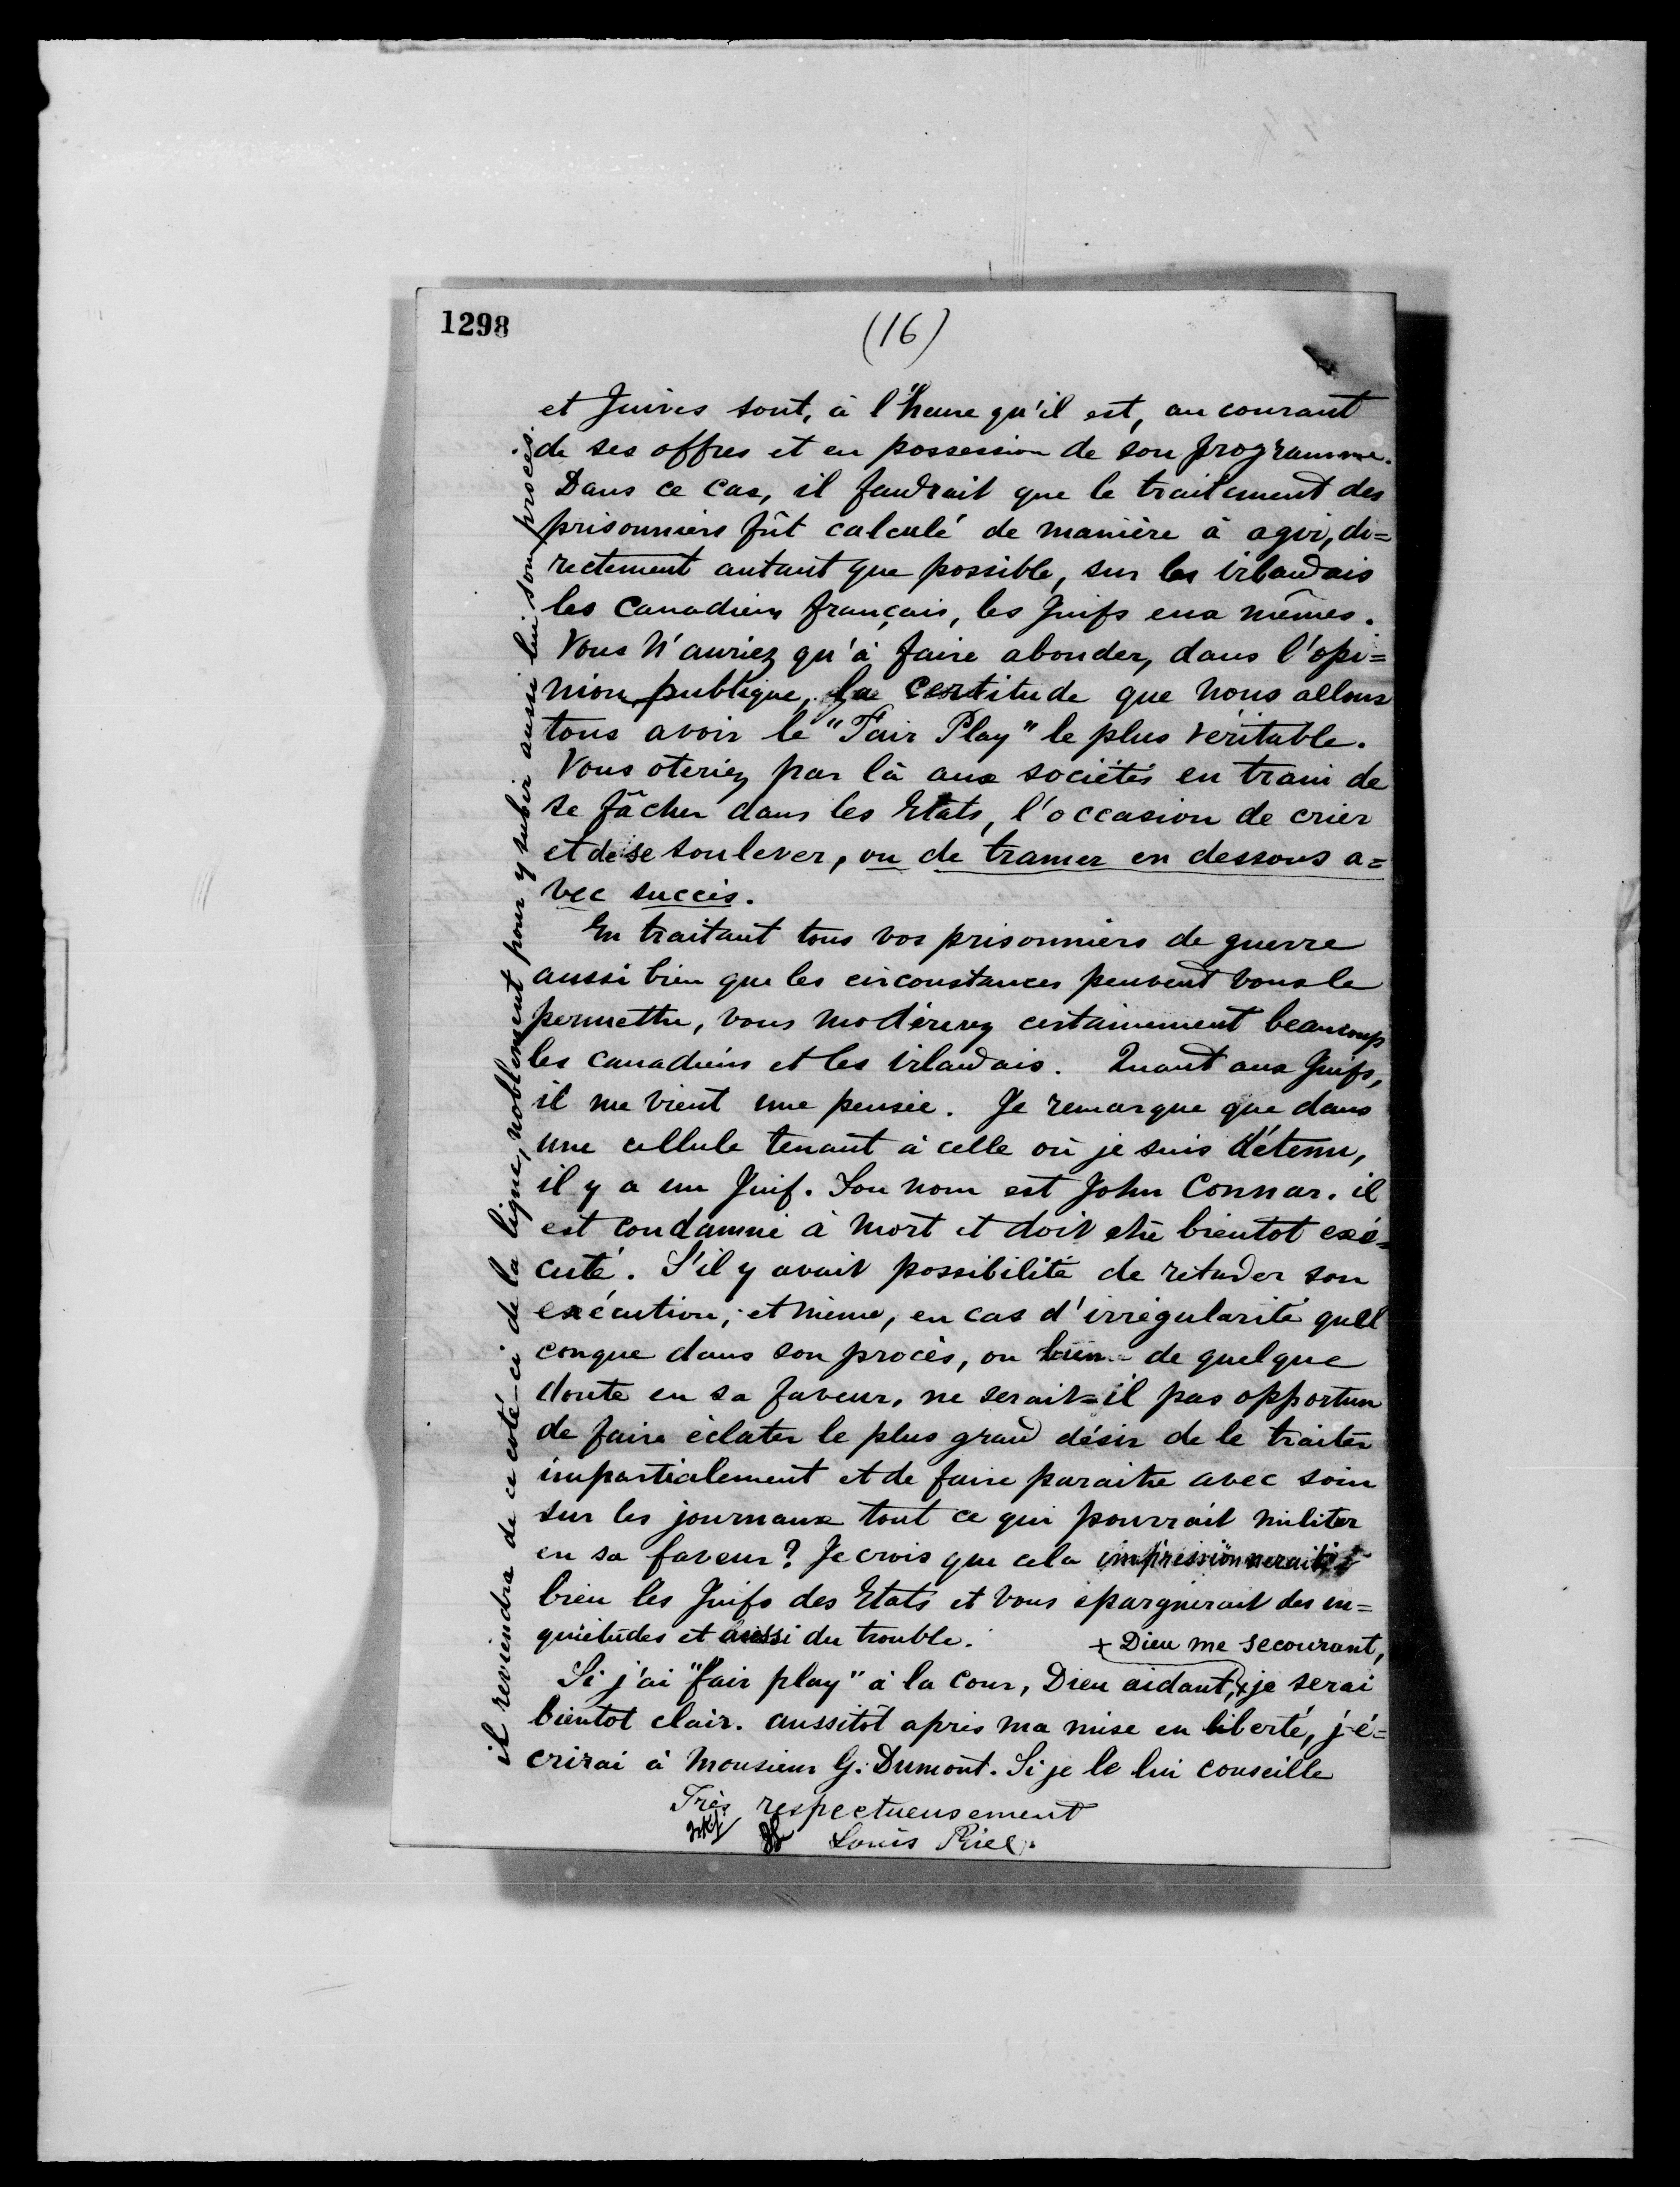 1298
(16)
et Juives sont, à l'heure qu'il est, au courant
de ses offres et en possession de son programme.
Dans ce cas, il faudrait que le traitement des
prisonniers fût calculé de manière à agir, di=
rectement autant que possible, sur les irlandais
les canadiens français, les Juifs eux mêmes.
Vous n'auriez qu'à faire abonder, dans l'opi=
nion publique, la certitude que nous allons
tous avoir le "Fair Play" le plus véritable.
Vous oteriez par là aux sociétés en train de
se fâcher dans les Etats, l'occasion de crier
et de se soulever, ou de tramer en dessous a=
vec succès.
En traitant tous vos prisonniers de guerre
aussi bien que les circonstances peuvent vous le
permettre, vous modérerez certainement beaucoup
les canadiens et les irlandais. Quant aux Juifs,
il me vient une pensée. Je remarque que dans
une cellule tenant à celle où je suis détenu,
il y a un Juif. Son nom est John Connar. il
est condamné à mort et doit etre bientot exé=
cuté. S'il y avait possibilité de retarder son
exécution; et même, en cas d'irrégularité quel
conque dans son procès, ou bien de quelque
doute en sa faveur, ne serait=il pas opportun
de faire éclater le plus grand désir de le traiter
impartialement et de faire paraitre avec soin
sur les journaux tout ce qui pourrait militer
en sa faveur? Je crois que cela impressionnerait
bien les Juifs des Etats et vous épargnerait des in=
quiétudes et aussi du trouble.
+ Dieu me secourant,
Si j'ai "fair play" à la cour, Dieu aidant, + je serai
bientot clair. aussitôt après ma mise en liberté, j'é=
crirai à Monsieur G. Dumont. Si je le lui conseille
il reviendra de ce coté-ci de la ligne, noblement pour y subir aussi lui son procès.
Très respectueusement
Louis Riel.